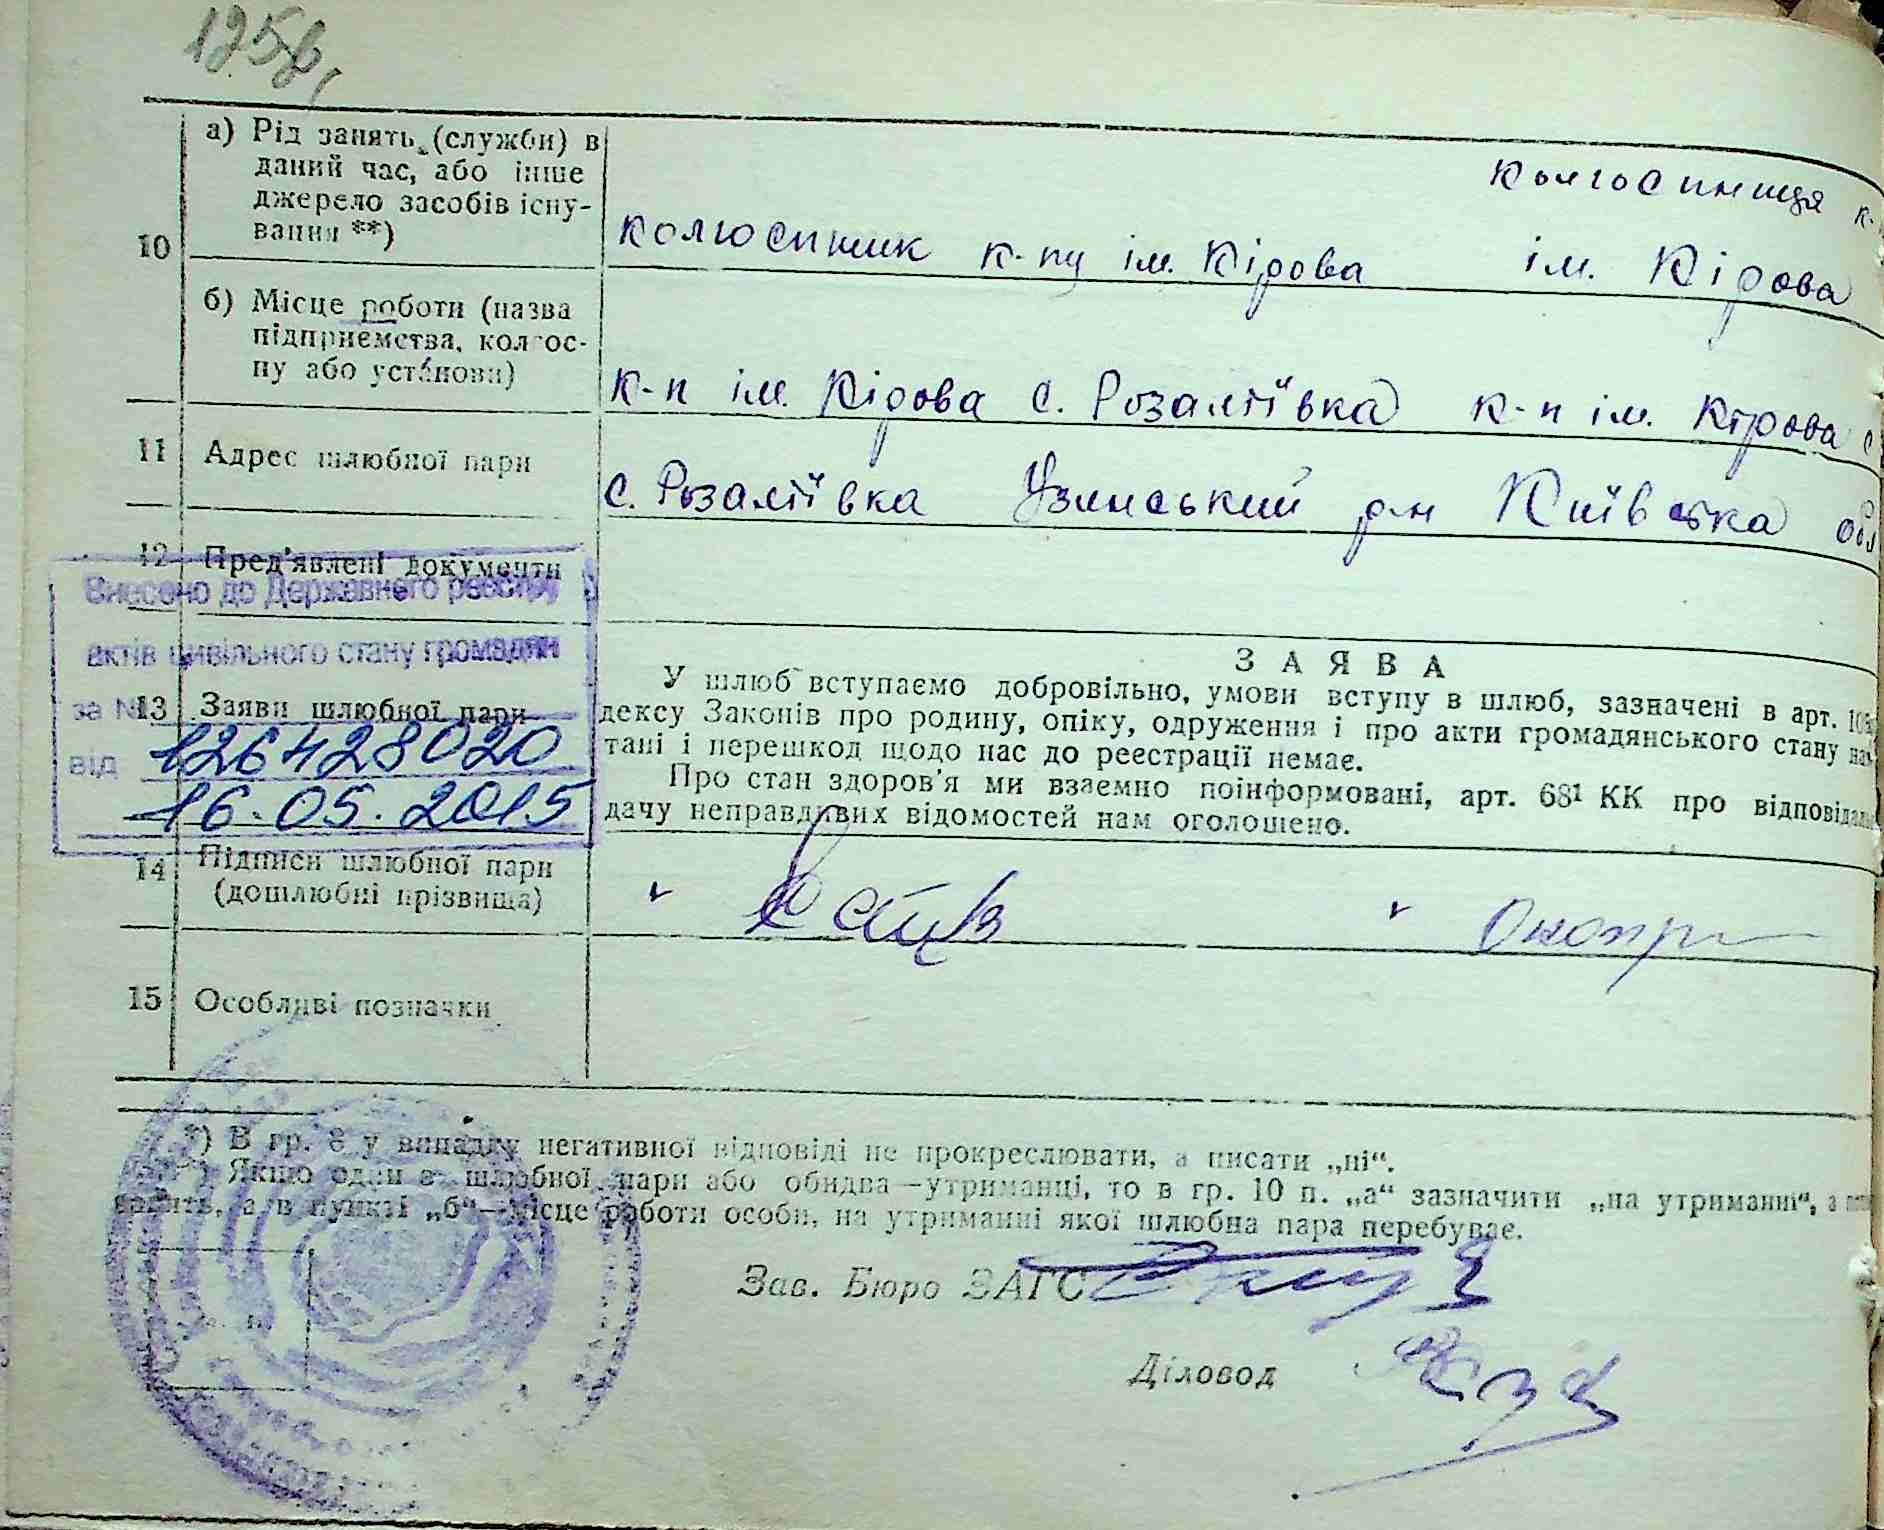 а) Рід занять (служби) в
даний час, або інше
джерело засобів існу-
вання **)
10
колгоспниця к-
колгоспник к-пу ім. Кірова ім. Кірова
б) Місце роботи (назва
підприємства, колгос-
пу або установи)
к-п ім. Кірова с. Розаліївка к-п ім. Кірова с
11 Адрес шлюбної пари
с. Розаліївка Узинський р-н Київська обл
12 Пред'явлені документи
Внесено до Державного реєстру
актів цивільного стану громадян
за №
126428020
від
16.05.2015
13 Заяви шлюбної пари
ЗАЯВА
У шлюб вступаємо добровільно, умови вступу в шлюб, зазначені в арт.
дексу Законів про родину, опіку, одруження і про акти громадянського стану
тані і перешкод щодо нас до реєстрації немає.
Про стан здоров'я ми взаємно поінформовані, арт. 68¹ КК про
дачу неправдивих відомостей нам оголошено.
14 Підписи шлюбної пари
(дошлюбні прізвища)
15 Особливі позначки
*) В гр. 8 у випадку негативної відповіді не прокреслювати, а писати „ні“.
**) Якщо один з шлюбної пари або обидва—утриманці, то в гр. 10 п. „а“ зазначити „на утриманні“, а
а в пункті „б“—місце роботи особи, на утриманні якої шлюбна пара перебуває.
Зав. Бюро ЗАГС
Діловод